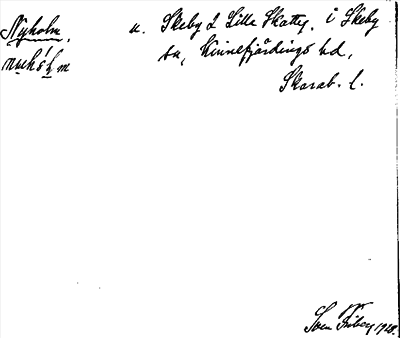 Nyholm. u. Skeby 2 Lilla Skattg. i Skeby
sn, Kinnefjärdings hd,
Skarab. l.
Sven Friberg 1920.